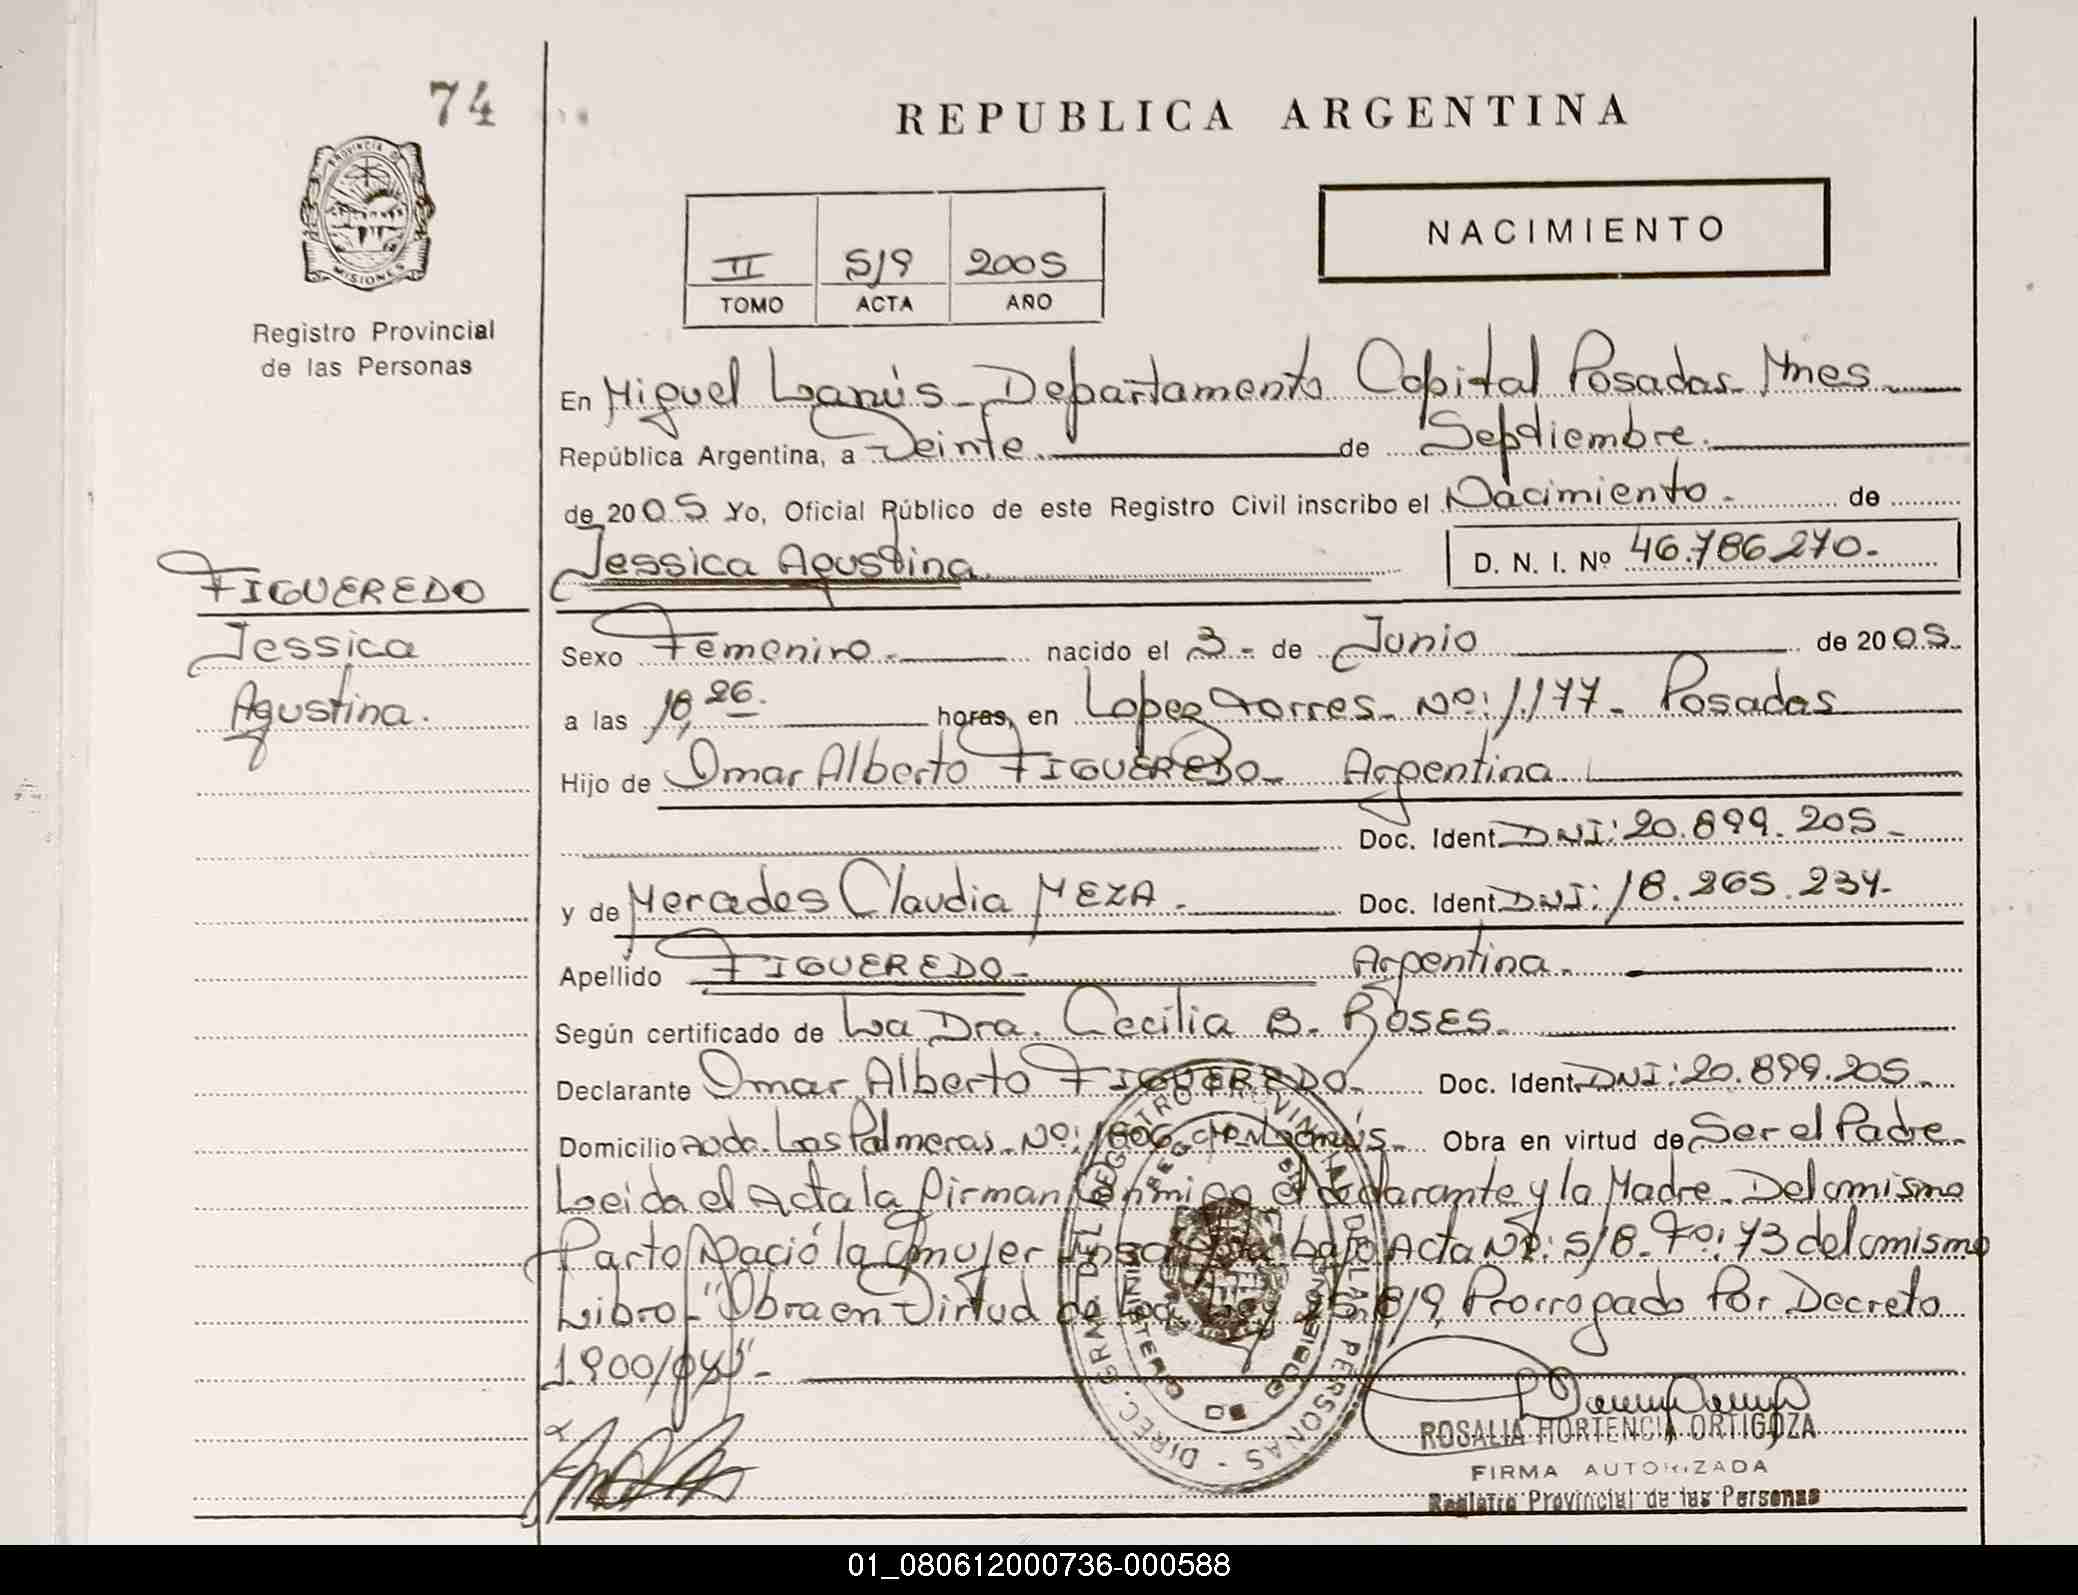 74
REPUBLICA ARGENTINA
PROVINCIA DE
MISIONES
Registro Provincial
de las Personas
II S/9 2005
TOMO ACTA AÑO
NACIMIENTO
En Miguel Lanús - Departamento Capital Posadas Mnes
República Argentina, a Veinte de Septiembre.
de 2005 Yo, Oficial Público de este Registro Civil inscribo el Nacimiento - de
Jessica Agustina D. N. I. Nº 46.786.270.-
FIGUEREDO
Jessica
Agustina.
Sexo Femenino.- nacido el 3 - de Junio de 2005.
a las 18,26. horas, en Lopez Torres - Nº: 1.177 - Posadas
Hijo de Omar Alberto FIGUEREDO - Argentina
Doc. Ident. DNI: 20.899.205 -
y de Mercedes Claudia MEZA - Doc. Ident. DNI: 18.265.234.-
Apellido FIGUEREDO - Argentina.
Según certificado de La Dra. Cecilia B. ROSES.
Declarante Omar Alberto FIGUEREDO - Doc. Ident. DNI: 20.899.205 -
Domicilio Avda. Las Palmeras - Nº: Lanús - Obra en virtud de Ser el Padre -
Leida el Acta la firman Conmigo el declarante y la Madre - Del mismo
Parto Nació la mujer bajo Acta Nº: S/8 - Fº: 73 del mismo
Libro - "Obra en Virtud de Ley 25.819, Prorrogado Por Decreto
1.900/04" -
DIREC. GRAL. DEL REGISTRO PROVINCIAL DE LAS PERSONAS -
MINISTERIO DE GOBIERNO
ROSALIA HORTENCIA ORTIGOZA
FIRMA AUTORIZADA
Registro Provincial de las Personas
01_080612000736-000588